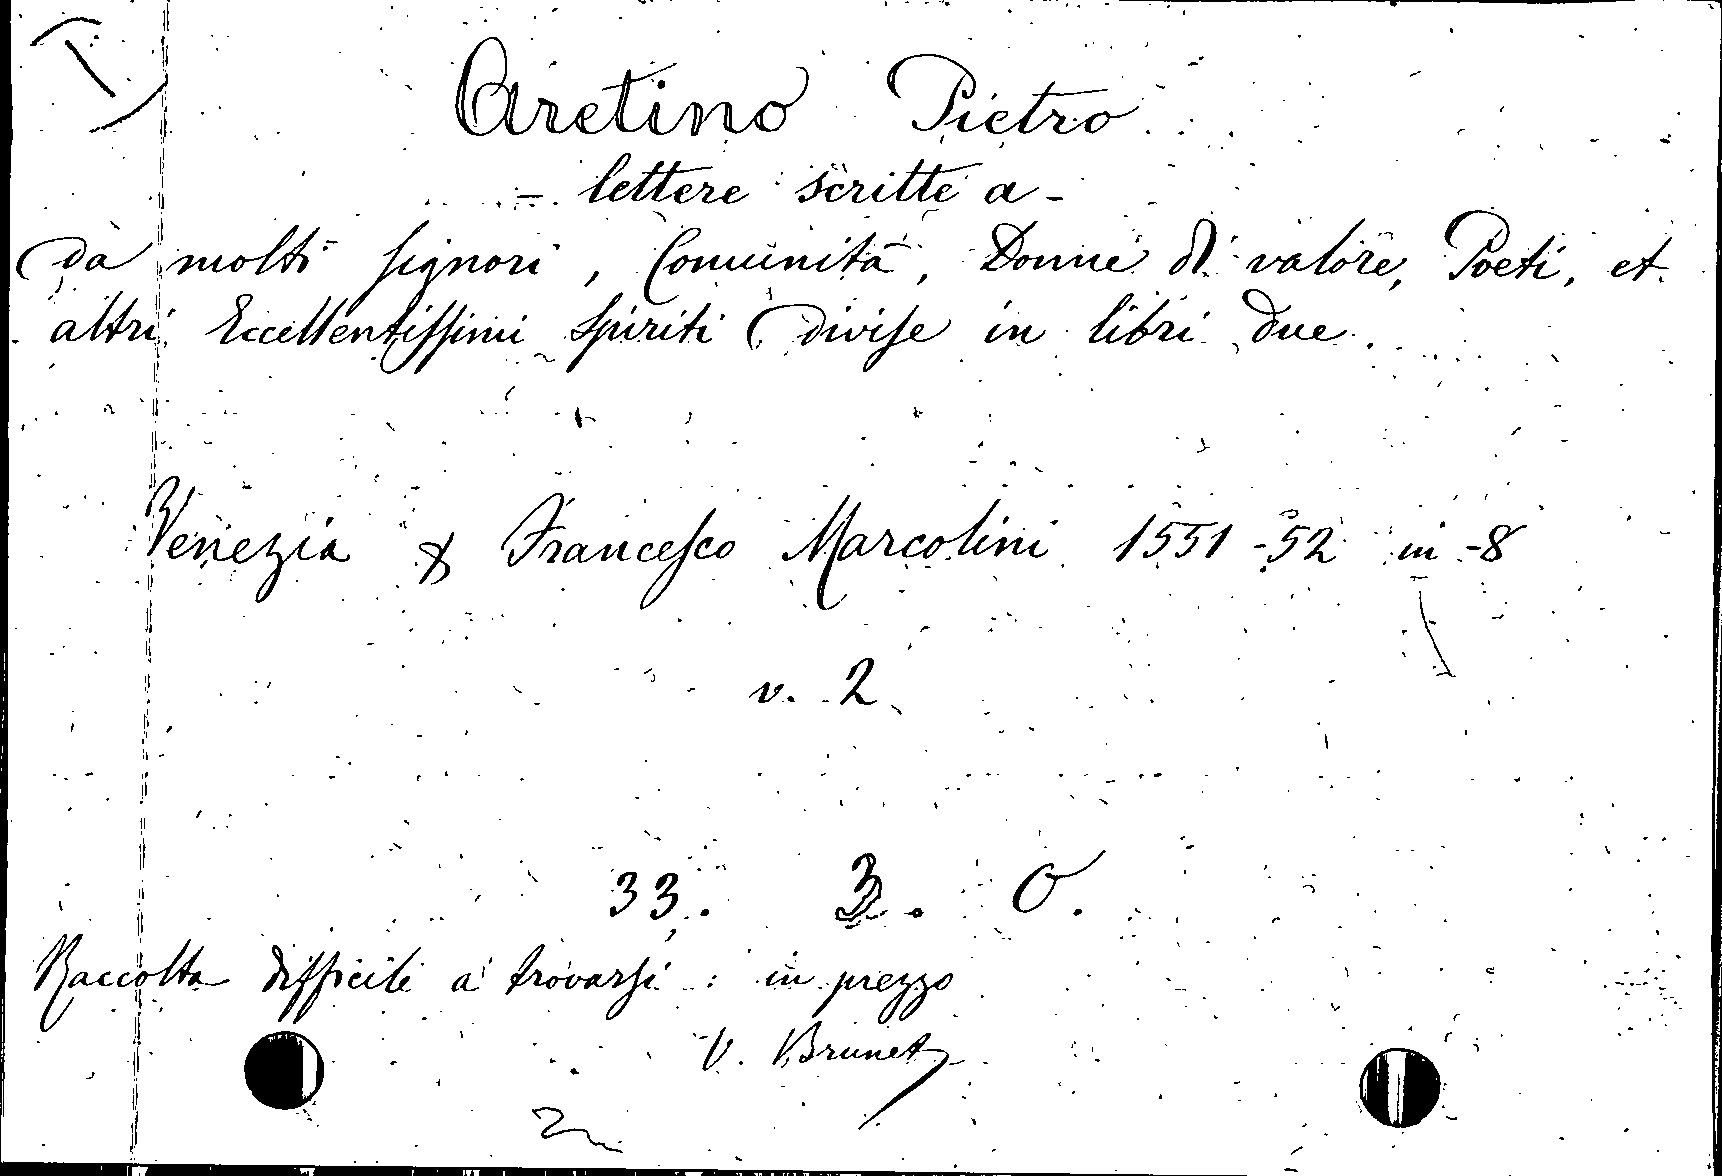 Aretino Pietro
- lettere scritte a -
da molti Signori, Comunità, Donne di valore, Poeti, et
altri Eccellentissimi Spiriti divise in libri due.
Venezia Francesco Marcolini 1551-52 in-8
v. 2
33. 3. 0.
Raccolta difficile a trovarsi: in prezzo
V. Brunet